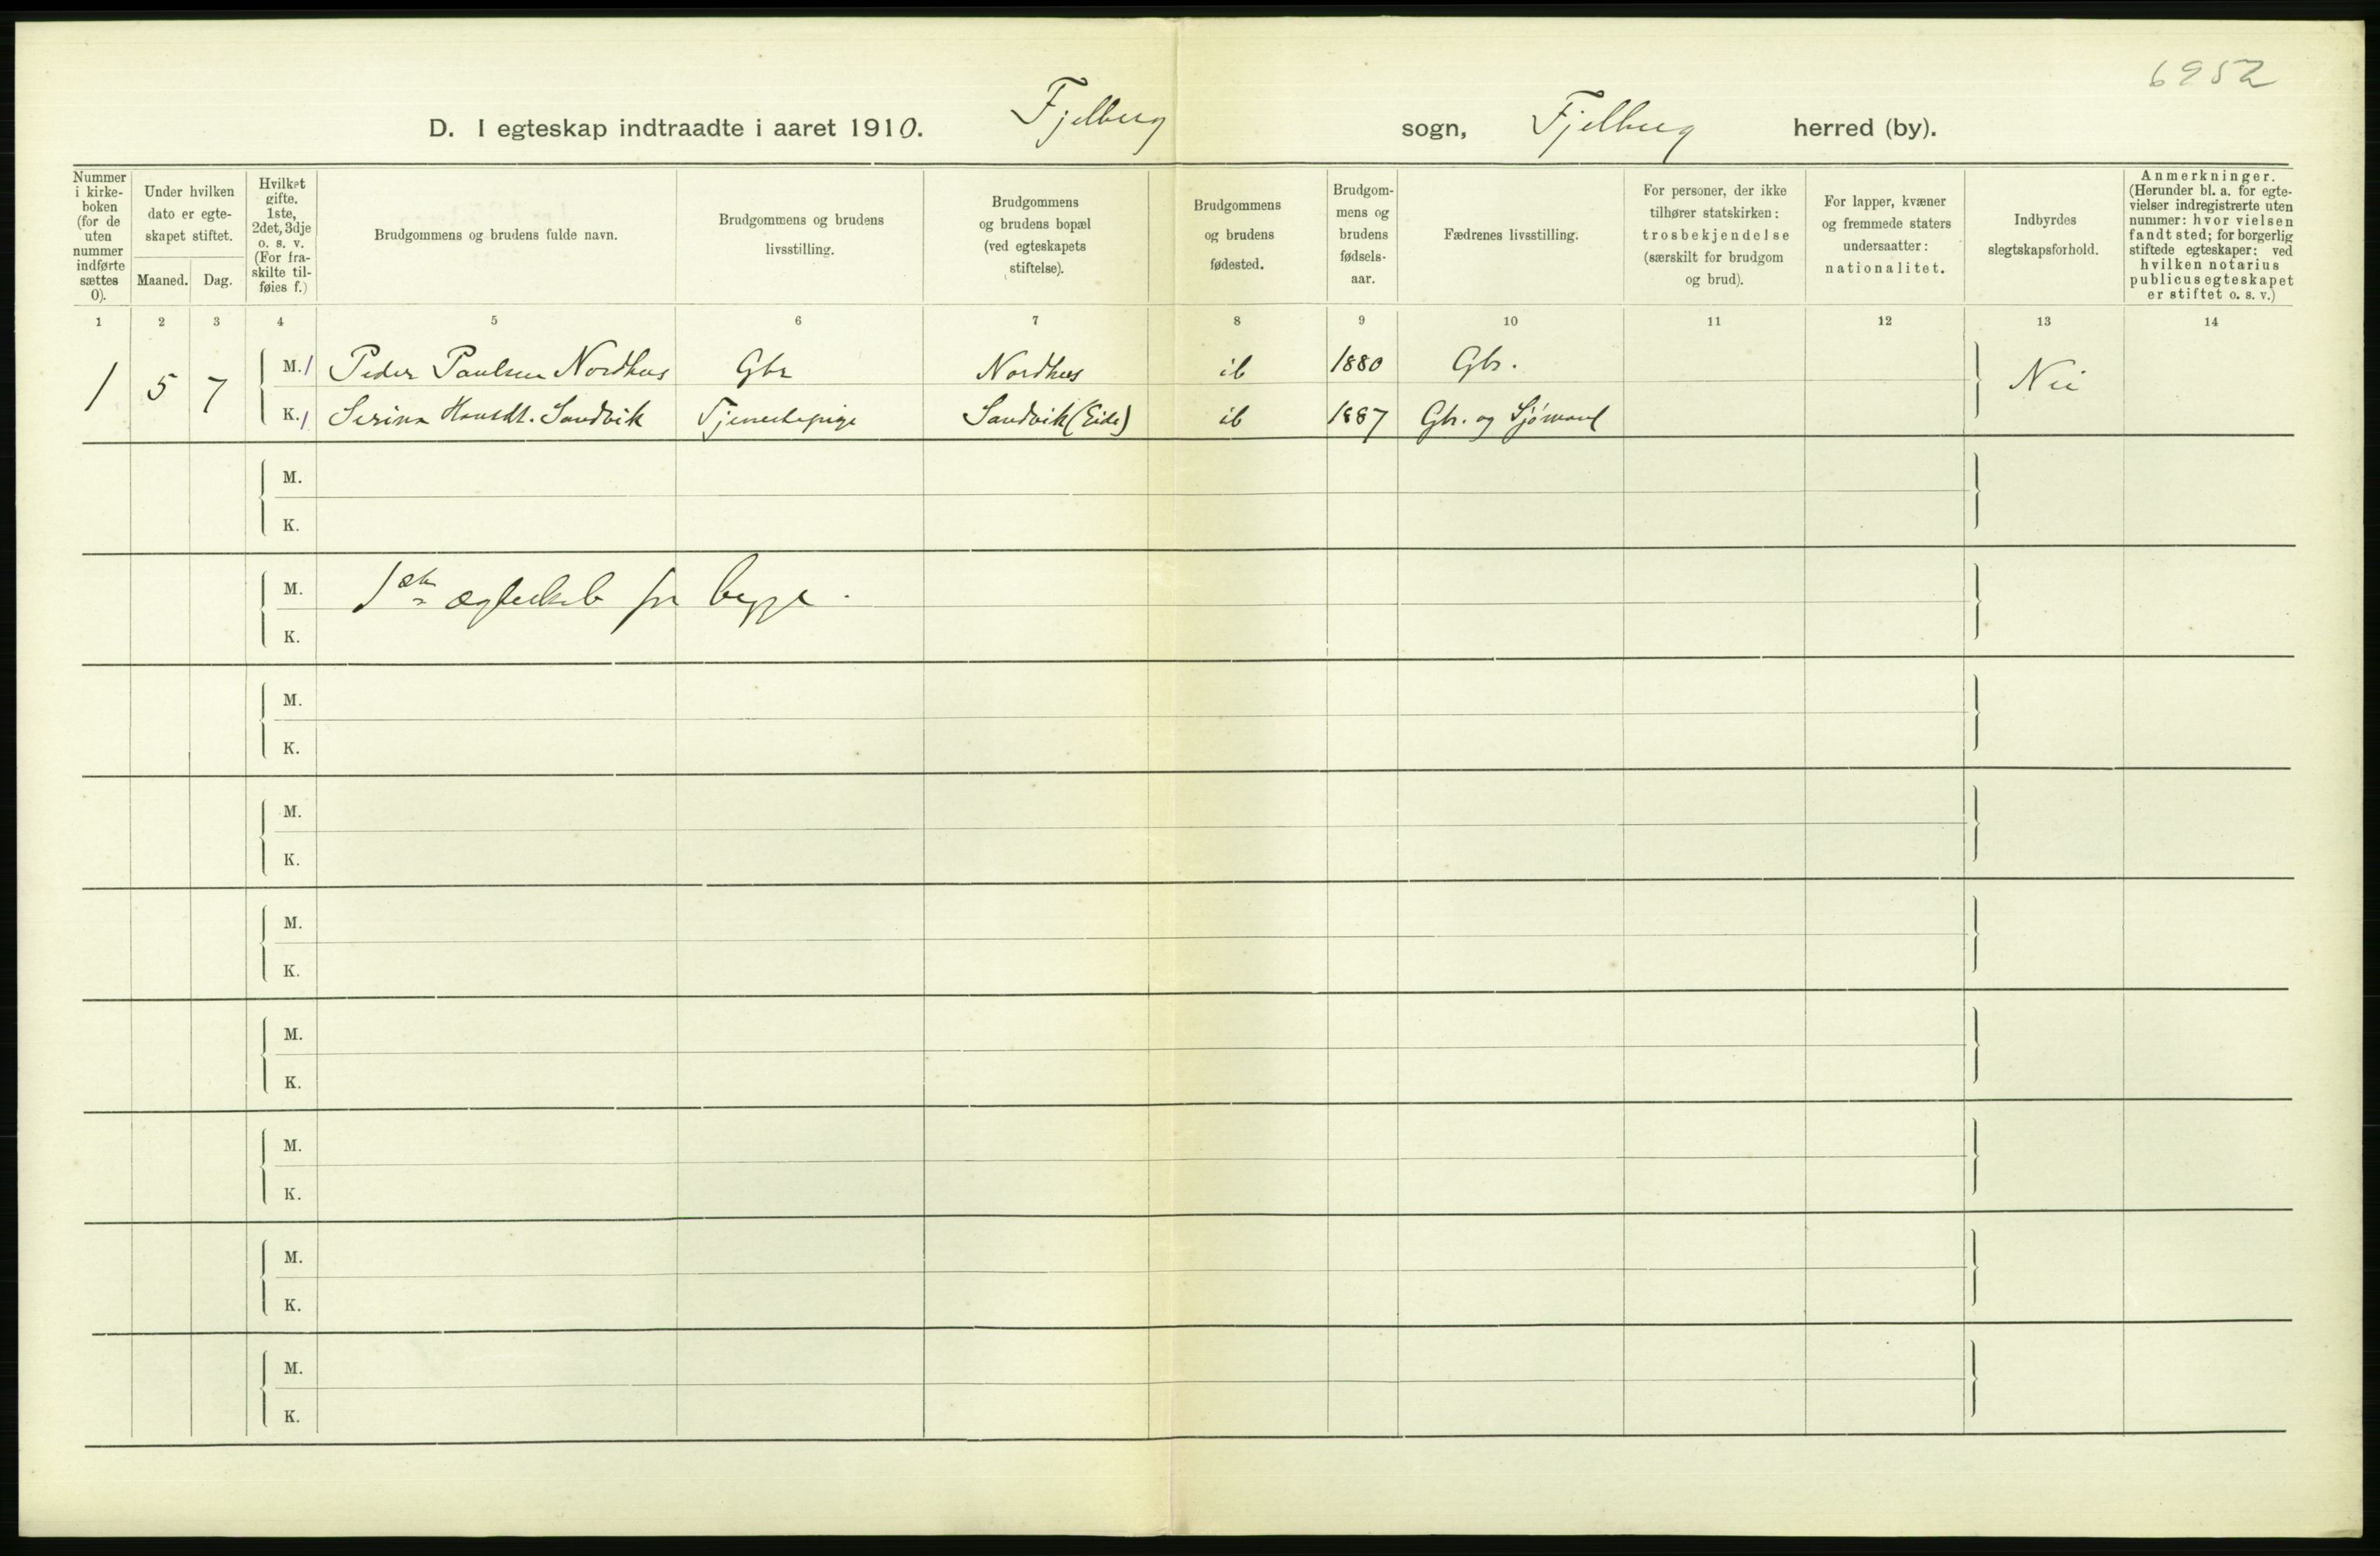 6952
D. I egteskap indtraadte i aaret 1910. Fjelberg sogn, Fjelberg herred (by).
Nummer i kirke-boken (for de uten nummer indførte sættes 0).
Under hvilken dato er egte-skapet stiftet.
Maaned. Dag.
Hvilket gifte. 1ste, 2det, 3dje o. s. v. (For fra-skilte til-føies f.)
Brudgommens og brudens fulde navn.
Brudgommens og brudens livsstilling.
Brudgommens og brudens bopæl (ved egteskapets stiftelse).
Brudgommens og brudens fødested.
Brudgom-mens og brudens fødsels-aar.
Fædrenes livsstilling.
For personer, der ikke tilhører statskirken: trosbekjendelse (særskilt for brudgom og brud).
For lapper, kvæner og fremmede staters undersaatter: nationalitet.
Indbyrdes slegtskapsforhold.
Anmerkninger. (Herunder bl. a. for egte-vielser indregistrerte uten nummer: hvor vielsen fandt sted; for borgerlig stiftede egteskaper: ved hvilken notarius publicus egteskapet er stiftet o. s. v.)
1 2 3 4 5 6 7 8 9 10 11 12 13 14
1 5 7 M. 1 Peder Paulsen Nordhus Gbr Nordhus ib 1880 Gbr. Nei
K. 1 Serina Hansdt. Sandvik Tjenestepige Sandvik (Eide) ib 1887 Gbr. og Sjømand
M.
K.
M. 1ste ægteskab for begge.
K.
M.
K.
M.
K.
M.
K.
M.
K.
M.
K.
M.
K.
M.
K.